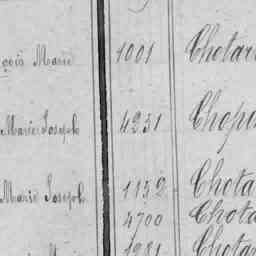 çois Marie 1001 Chotar
Marie Joseph 4231 Chopi
Marie Joseph 1152 Chota
4700 Chota
1281 Chotar